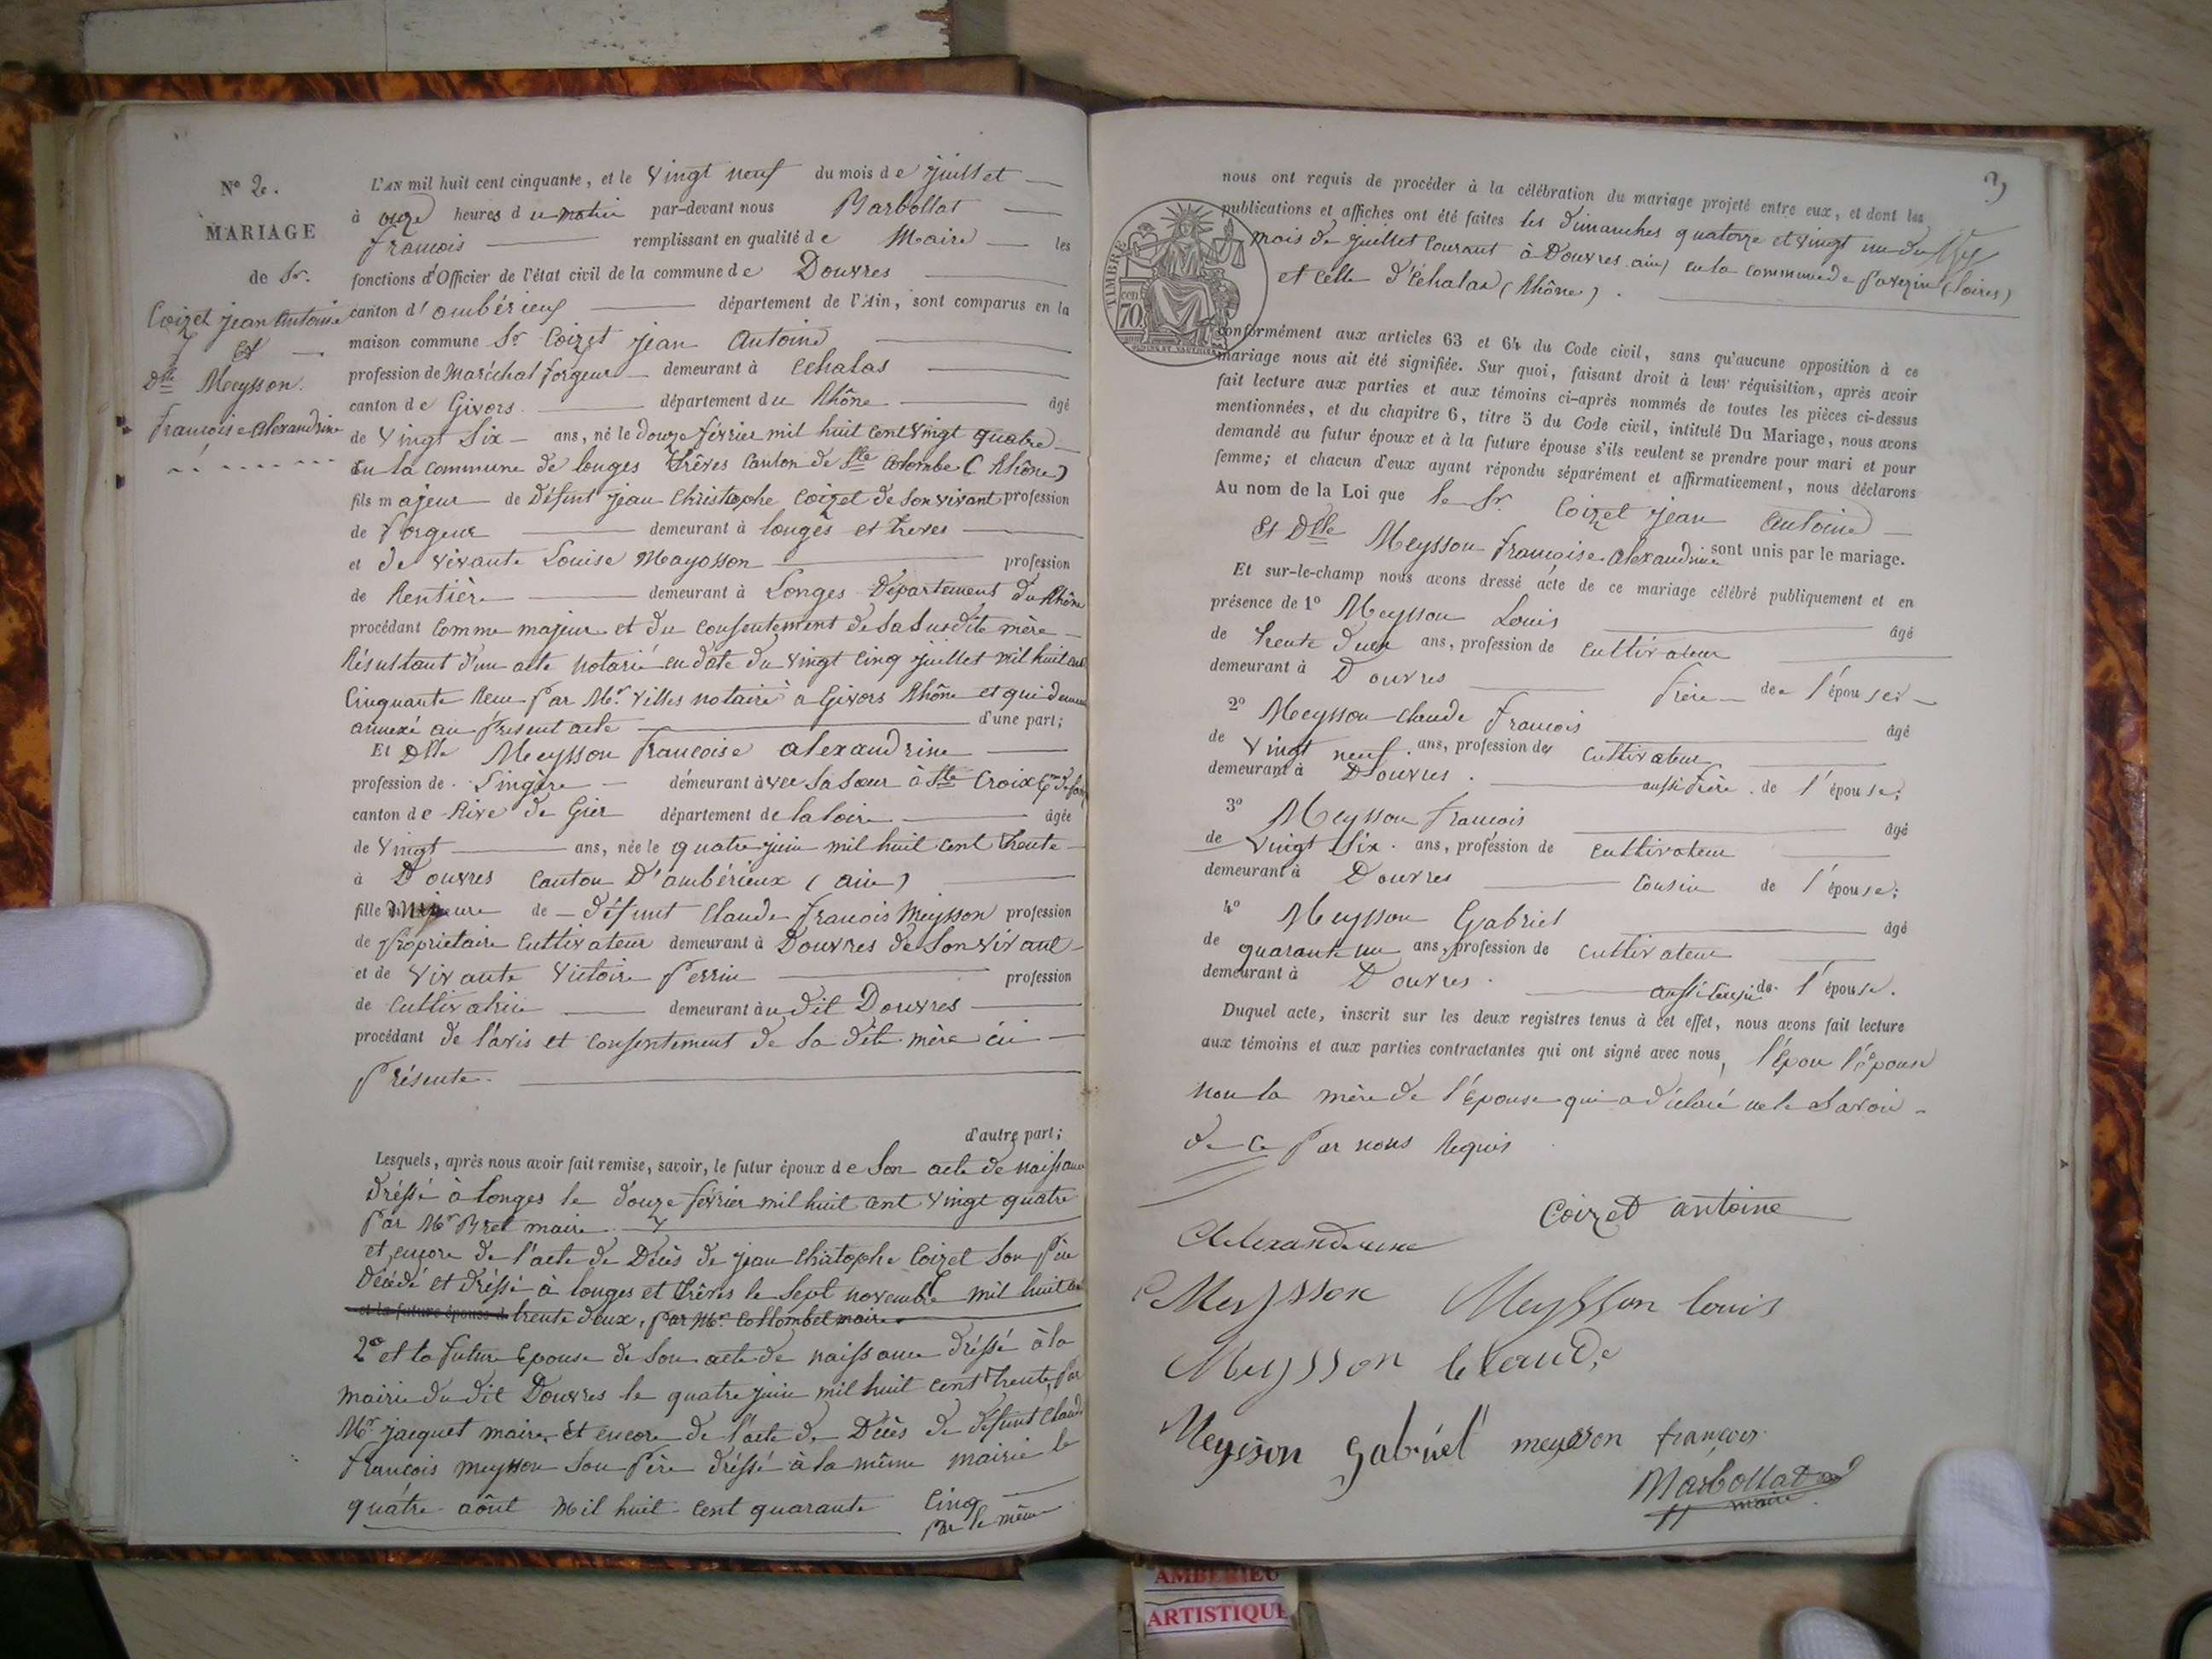 N° 2.
MARIAGE
de Sr.
Coizet jean Antoine
et
Dlle Meysson.
francoise alexandrine
L'AN mil huit cent cinquante, et le vingt neuf du mois de juillet
à onze heures du matin par-devant nous Barbollat
francois remplissant en qualité de Maire les
fonctions d'Officier de l'état civil de la commune de Douvres
canton d'ambérieux département de l'Ain, sont comparus en la
maison commune Sr Coizet jean Antoine
profession de Maréchal forgeur demeurant à Echalas
canton de Givors département du Rhône âgé
de vingt six ans, né le douze février mil huit cent vingt quatre
en la commune de longes trêves canton de Ste Colombe (Rhône)
fils majeur de défunt jean Christophe Coizet de son vivant profession
de forgeur demeurant à longes et treves
et de vivante Louise Mayosson profession
de Rentière demeurant à Longes Département du Rhône
procédant comme majeur et du consentement de sa susdite mère
Résultant d'un acte notarié en date du vingt cinq juillet mil huit cent
Cinquante Reçu par Mr. Villes notaire à Givors Rhône et qui demeure
annexé au présent acte d'une part;
Et Dlle Meysson francoise alexandrine
profession de Lingère demeurant avec sa sœur à Ste Croix
canton de Rive de Gier département de la loire âgée
de vingt ans, née le quatre juin mil huit cent trente
à Douvres canton D'ambérieux (ain)
fille mineure de défunt Claude francois Meysson profession
de propriétaire cultivateur demeurant à Douvres de son vivant
et de vivante victoire Perrin profession
de cultivatrice demeurant au dit Douvres
procédant de l'avis et consentement de sa dite mère ici
présente.
d'autre part;
Lesquels, après nous avoir fait remise, savoir, le futur époux de son acte de naissance
dréssé à longes le douze février mil huit cent vingt quatre
par Mr Bret maire
et encore de l'acte de Décès de jean Chistophe Coizet son père
décédé et dréssé à longes et trêves le sept novembre mil huit cent
et la future épouse d trente deux, par Mr. Collombet maire
2° et la future épouse de son acte de naissance dréssé à la
mairie du dit Douvres le quatre juin mil huit cent trente, par
Mr jacquet maire, et encore de l'acte de Décès de défunt Claude
francois meysson son père dréssé à la même mairie le
quatre août mil huit cent quarante cinq
par le même
3
nous ont requis de procéder à la célébration du mariage projeté entre eux, et dont les
publications et affiches ont été faites les dimanches quatorze et vingt un du
mois de juillet courant à Douvres ain, en la commune de Pavezin (Loire)
et celle d'Echalas (Rhône).
TIMBRE
cen
70
conformément aux articles 63 et 64 du Code civil, sans qu'aucune opposition à ce
mariage nous ait été signifiée. Sur quoi, faisant droit à leur réquisition, après avoir
fait lecture aux parties et aux témoins ci-après nommés de toutes les pièces ci-dessus
mentionnées, et du chapitre 6, titre 5 du Code civil, intitulé Du Mariage, nous avons
demandé au futur époux et à la future épouse s'ils veulent se prendre pour mari et pour
femme; et chacun d'eux ayant répondu séparément et affirmativement, nous déclarons
Au nom de la Loi que le Sr. Coizet jean Antoine
et Dlle Meysson françoise alexandrine sont unis par le mariage.
Et sur-le-champ nous avons dressé acte de ce mariage célébré publiquement et en
présence de 1° Meysson Louis âgé
de trente deux ans, profession de cultivateur
demeurant à Douvres frère de l'épouse;
2° Meysson Claude francois âgé
de vingt neuf ans, profession de cultivateur
demeurant à Douvres. aussi frère de l'épouse;
3° Meysson francois âgé
de vingt six ans, profession de cultivateur
demeurant à Douvres cousin de l'épouse;
4° Meysson Gabriel âgé
de quarante un ans, profession de cultivateur
demeurant à Douvres. aussi cousin de l'épouse.
Duquel acte, inscrit sur les deux registres tenus à cet effet, nous avons fait lecture
aux témoins et aux parties contractantes qui ont signé avec nous, l'Epou l'épouse
non la mère de l'Epouse qui a déclaré ne le savoir
de ce par nous Requis
Coizet antoine
Alexandrine
Meysson Meysson louis
Meysson Claude
Meysson Gabriel meysson françois
Barbollat
maire
AMBERIEU
ARTISTIQUE